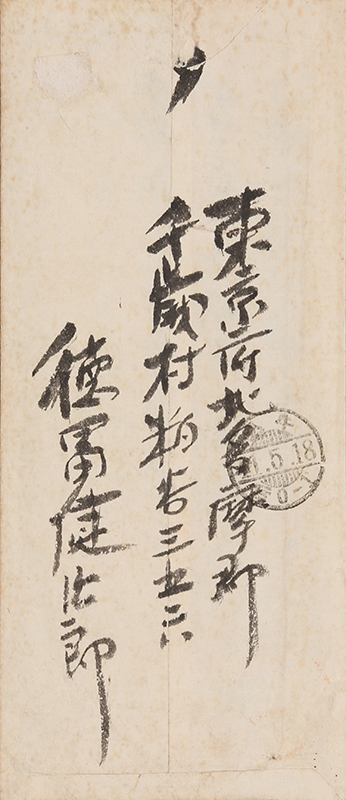 東京府北多摩郡
千歳村粕谷三五六
徳冨健次郎
5.18